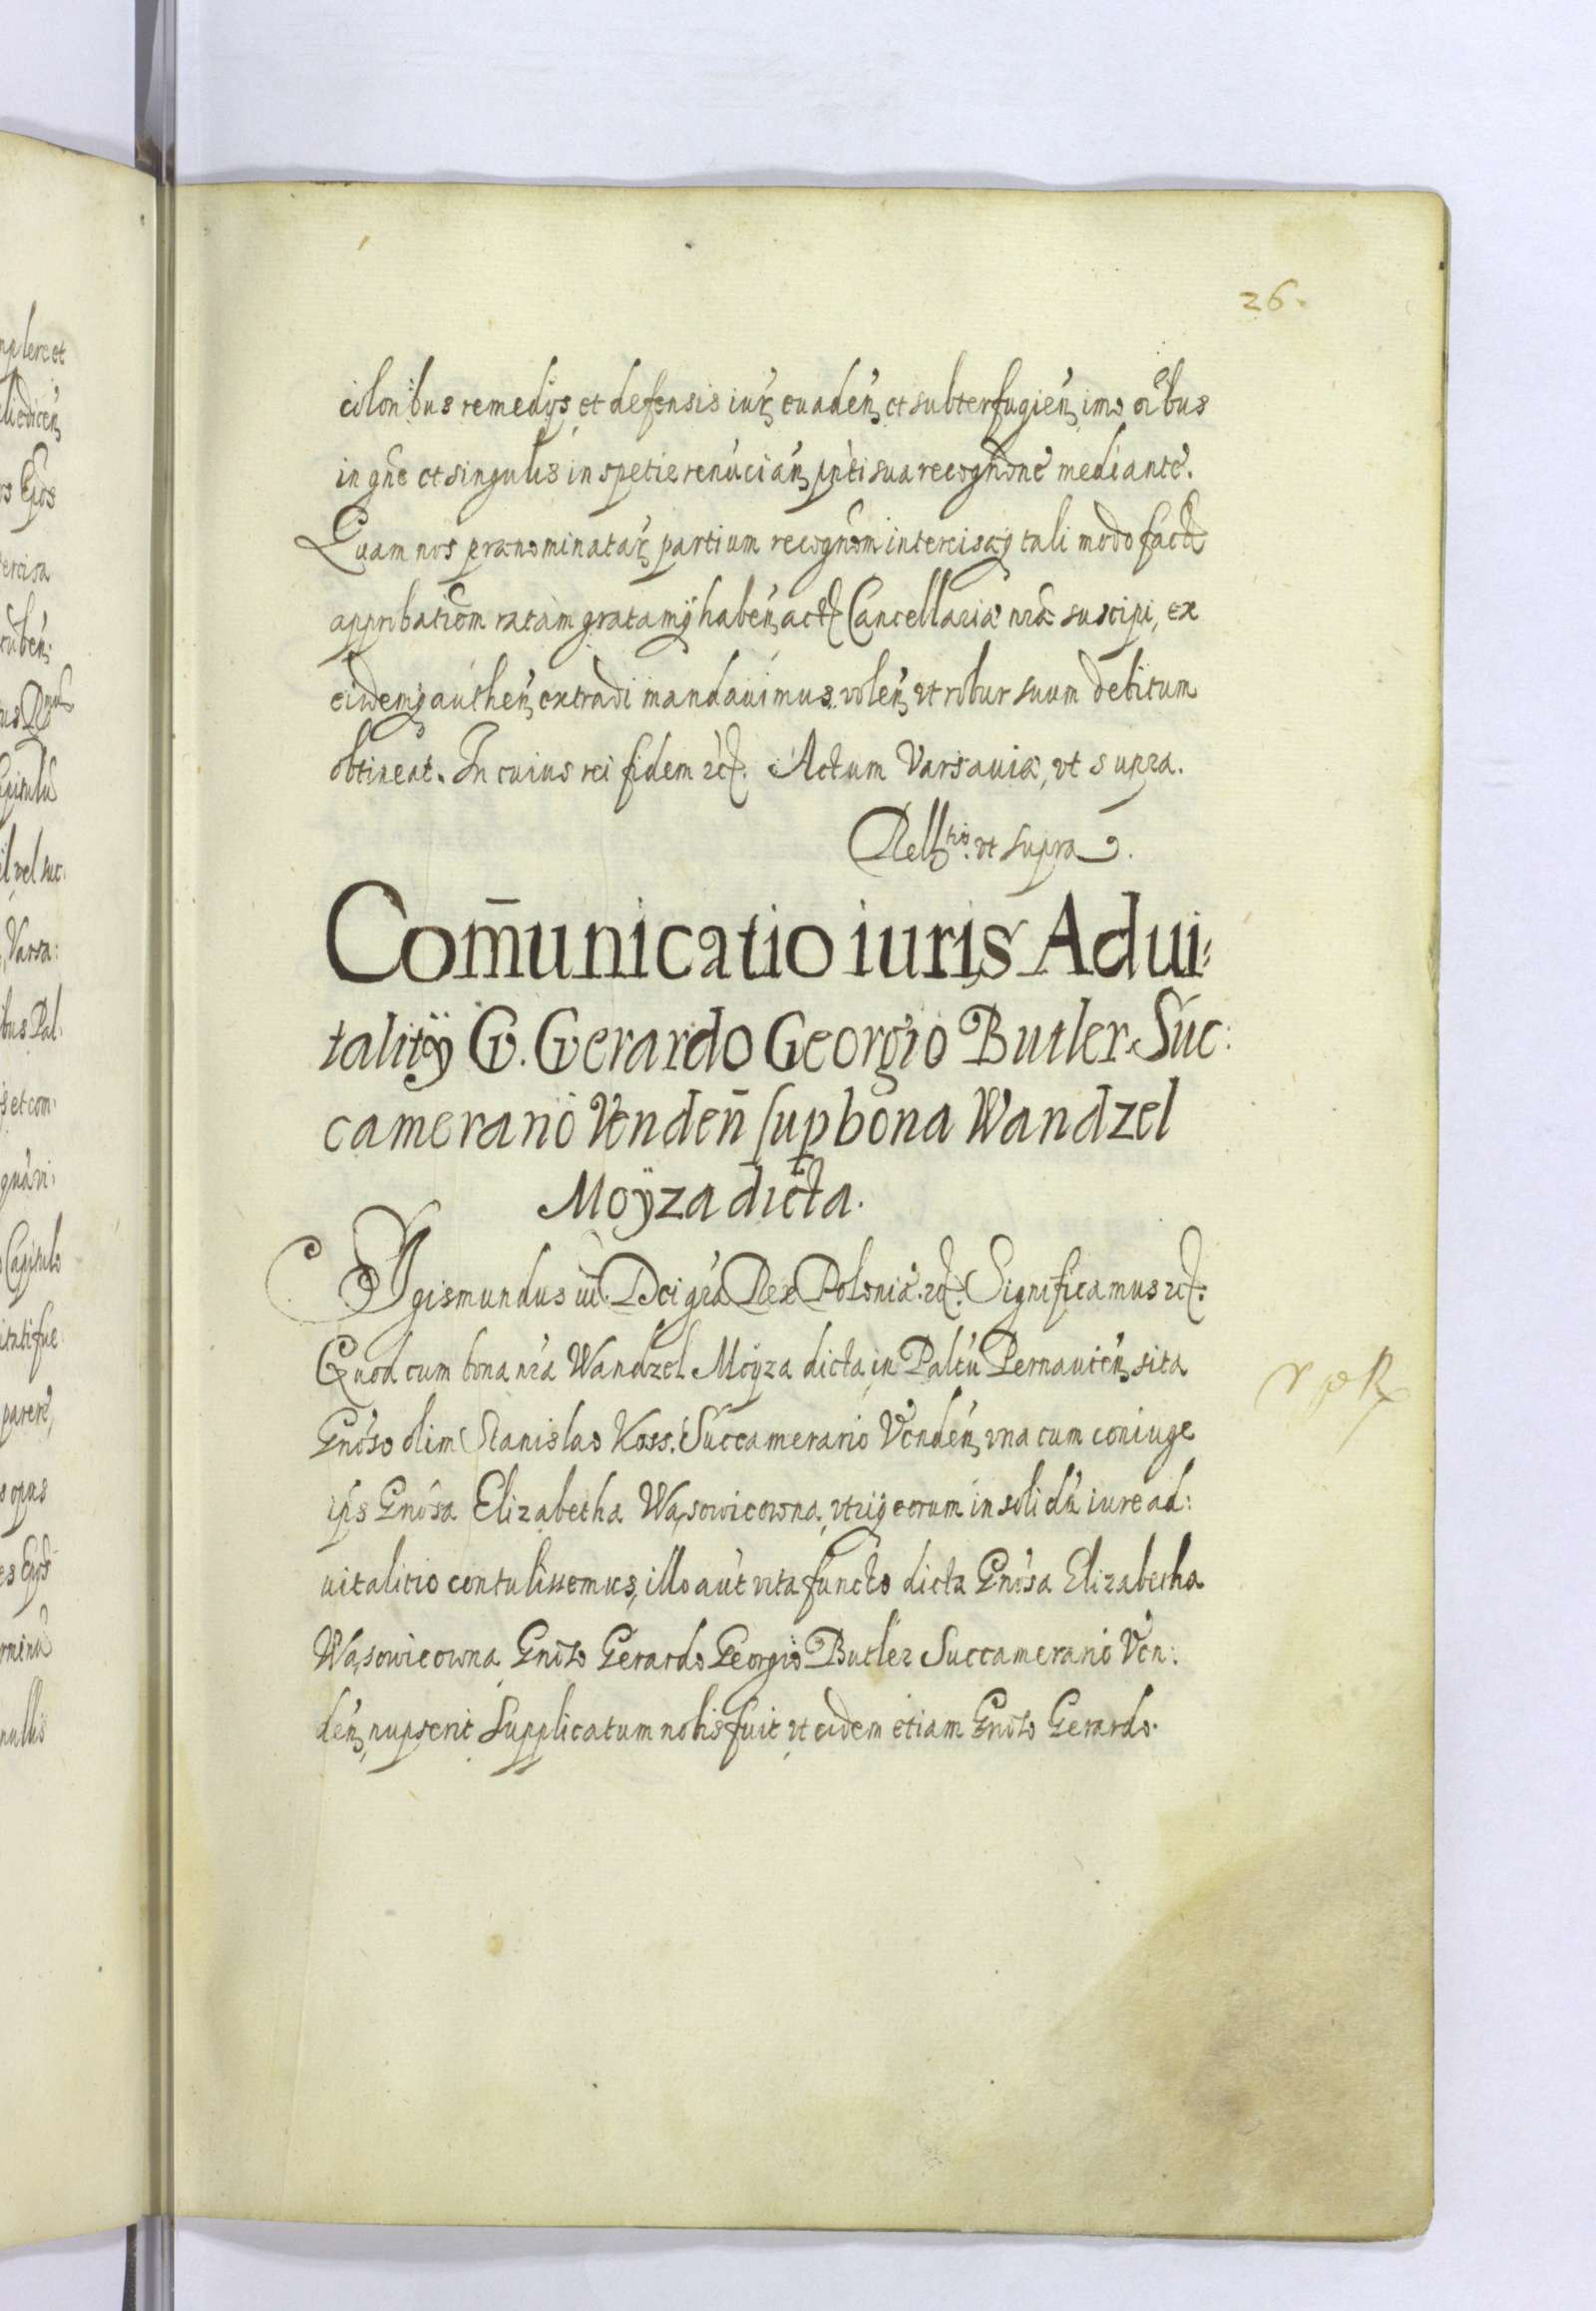 26.
cilonibus remedijs et defensis iur, euaden, et subterfugien, imo oibus
in gne et singulis in spetie renuncian, pnti sua recognone mediante.
Quam nos pranominatar, partium recognom intercisaq tali modo facta
approbatiom ratam gratamq haben, acta Cancellariæ nræ suscipi, ex
eidemq authen, extradi mandauimus. volen, vt robur suum debitum
obtineat. In cuius rei fidem etc. Actum Varsauiæ, vt supra.
Rellatio. vt supra.
Com̄unicatio iuris Adui-
talitÿ G. Gerardo Georgio Butler Suc:
camerario Venden̄ sup bona Wandzel
Moÿza dicta.
Sigismundus iii. Dei gra Rex Poloniæ. etc. Significamus etc.
Quod cum bona nra Wandzel Moÿza dicta in Paltu Pernauien, sita
Gnoso olim Stanislao Koss. Succamerario Venden, vna cum coniuge
ips Gnosa Elizabetha Wąsowicowna, vtriq eorum in solidu iure ad:
uitalitio contulissemus, illo aut vita functo dicta Gnosa Elizabetha
Wąsowicowna Gnoso Gerardo Georgio Butler Succamerario Ven:
den, nupserit Supplicatum nobis fuit vt eidem etiam Gnoso Gerardo.